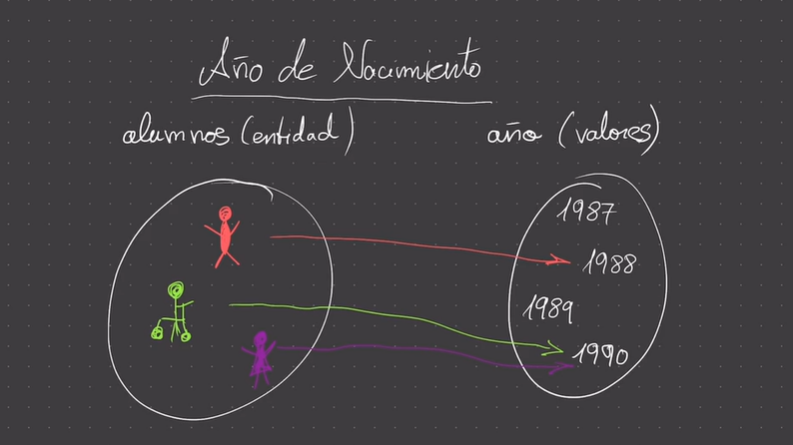 Año de Nacimiento
alumnos (entidad)
año (valores)
1987
1988
1989
1990